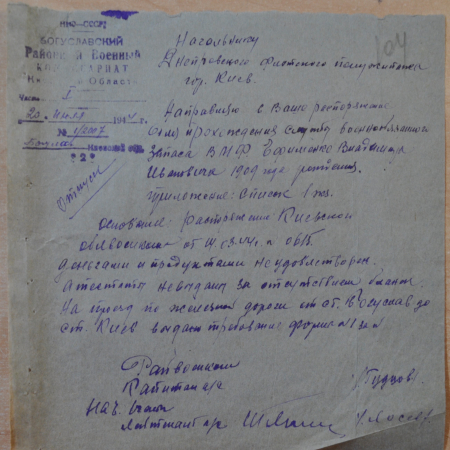 НКО-СССР
БОГУСЛАВСКИЙ
Районный Военный
КОМИССАРИАТ
Области
Часть I
20 июля 1944 г.
№ 1/2007
Богуслав
"2"
Отпуск
104
Начальнику
Днепровского Флотского полуэкипажа
гор. Киев.
Направляю в Ваше распоряжение
для прохождения службы военнообязанного
запаса ВМФ Ефименко Владимир
Иванович 1909 года рождения.
Приложение: Список 1 экз.
Основание: Распоряжение Киевского
облвоенкома от
Деньгами и продуктами не удовлетворен.
Аттестаты не выданы за отсутствием бланков.
На проезд по железной дороге от ст. Богуслав до
ст. Киев выдано требование формы №1 за №
Райвоенком
Капитан а/с
Нач. части
Лейтенант а/с